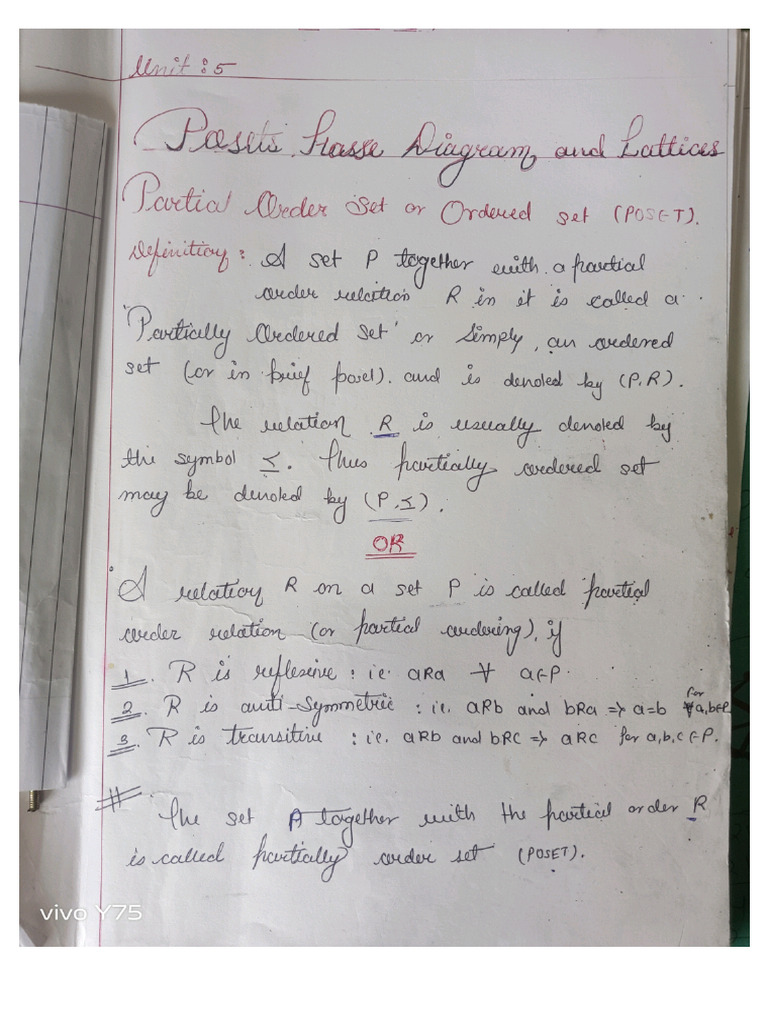 Unit : 5
Posets, Hasse Diagram and Lattices
Partial Order Set or Ordered set (POSET).
Definition : A set P together with a partial
order relation R in it is called a
'Partially Ordered Set' or Simply, an ordered
set (or in brief poset). and is denoted by (P,R).
The relation R is usually denoted by
the symbol ≤. Thus partially ordered set
may be denoted by (P,≤).
OR
A relation R on a set P is called partial
order relation (or partial ordering), if
1. R is reflexive : ie. aRa ∀ a∈P.
2. R is anti-Symmetric : i.e. aRb and bRa => a=b for ∀a,b∈P
3. R is transitive : i.e. aRb and bRc => aRc for a,b,c∈P.
# The set A together with the partial order R
is called partially order set (POSET).
vivo Y75